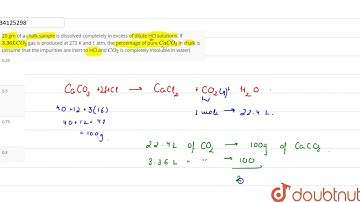 34125298
20 gm of a chalk sample is dissolved completely in excess of dilute HCl solutions. If
3.36L CO₂ gas is produced at 273 K and 1 atm, the percentage of pure CaCO₃ in chalk is
(assume that the impurities are inert to HCl and CO₂ is completely insoluble in water)
0.25
0.5
0.75
0.9
CaCO₃ + 2HCl → CaCl₂ + CO₂(g)↑ + H₂O.
40+12+3(16)
40+12+48
=100g
1 mole → 22.4L
22.4L of CO₂ → 100g of CaCO₃
3.36L " " → 100
doubtnut